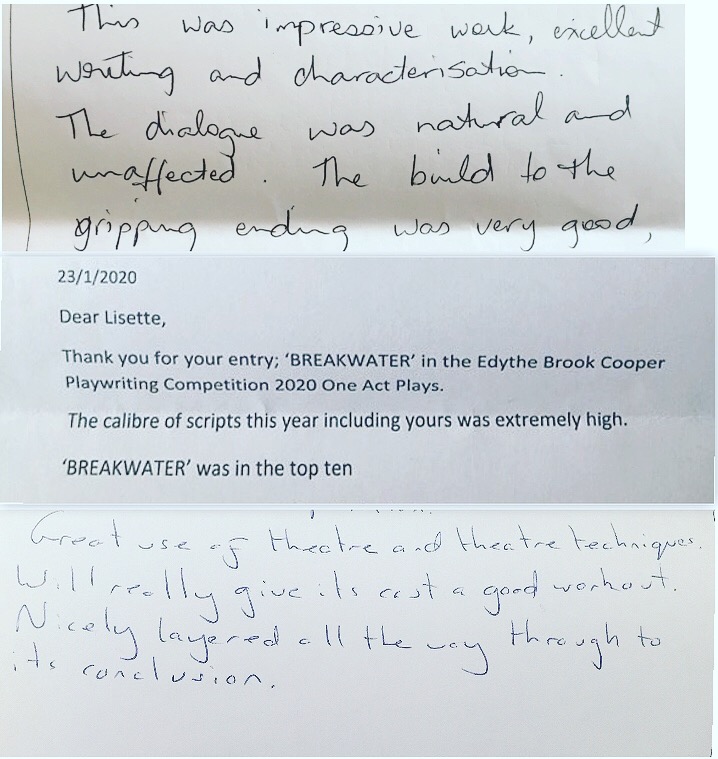 This was impressive work, excellent
writing and characterisation.
The dialogue was natural and
unaffected. The build to the
gripping ending was very good,
23/1/2020
Dear Lisette,
Thank you for your entry; ‘BREAKWATER’ in the Edythe Brook Cooper
Playwriting Competition 2020 One Act Plays.
The calibre of scripts this year including yours was extremely high.
‘BREAKWATER’ was in the top ten
Great use of theatre and theatre techniques.
Will really give its cast a good workout.
Nicely layered all the way through to
its conclusion.